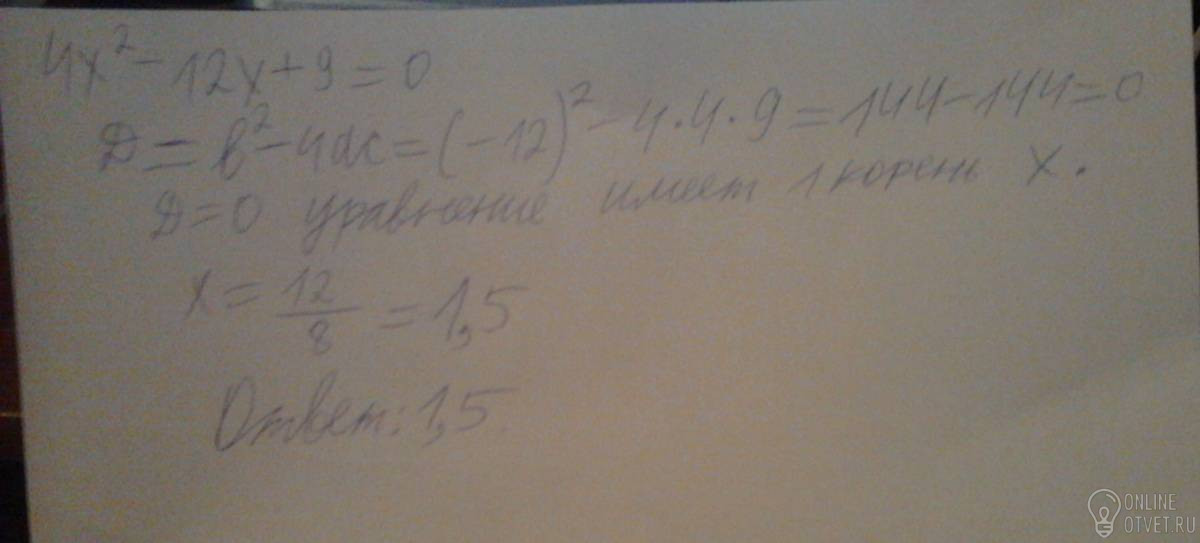 4x² - 12x + 9 = 0
D = b² - 4ac = (-12)² - 4·4·9 = 144 - 144 = 0
D = 0 уравнение имеет 1 корень x.
x = 12/8 = 1,5
Ответ: 1,5.
ONLINE
OTVET.RU